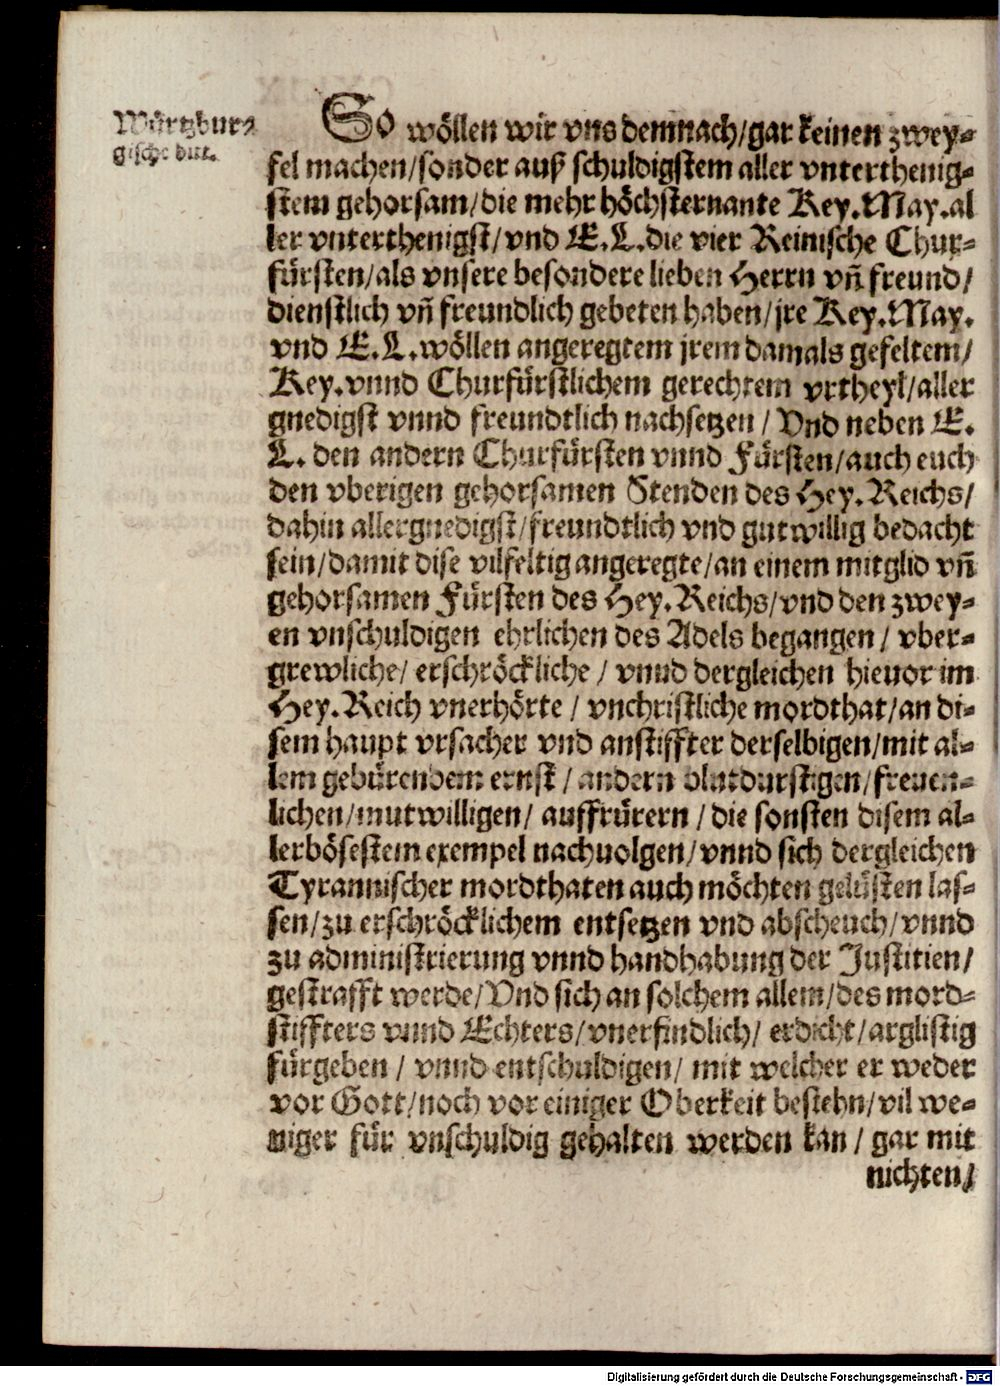 Würtzbur-
gische bitt.
So wöllen wir vns demnach/gar keinen zwey-
fel machen/sonder auß schuldigstem aller vnterthenig-
stem gehorsam/die mehr höchsternante Key.May.al
ler vnterthenigst/vnd E.L.die vier Reinische Chur-
fürsten/als vnsere besondere lieben Herrn vñ freund/
dienstlich vñ freundlich gebeten haben/jre Key.May.
vnd E.L.wöllen angeregtem jrem damals gefeltem/
Key.vnnd Churfürstlichem gerechtem vrtheyl/aller
gnedigst vnnd freundtlich nachsetzen/Vnd neben E.
L. den andern Churfürsten vnnd Fürsten/auch euch
den vberigen gehorsamen Stenden des Hey.Reichs/
dahin allergnedigst/freundtlich vnd gutwillig bedacht
sein/damit dise vilfeltig angeregte/an einem mitglid vñ
gehorsamen Fürsten des Hey.Reichs/vnd den zwey-
en vnschuldigen ehrlichen des Adels begangen/vber-
grewliche/erschröckliche/vnnd dergleichen hieuor im
Hey.Reich vnerhörte/vnchristliche mordthat/an di-
sem haupt vrsacher vnd anstiffter derselbigen/mit al-
lem gebürendem ernst/andern blutdurstigen/freuen-
lichen/mutwilligen/auffrürern/die sonsten disem al-
lerbösestem exempel nachuolgen/vnnd sich dergleichen
Tyrannischer mordthaten auch möchten gelüsten las-
sen/zu erschröcklichem entsetzen vnd abscheuch/vnnd
zu administrierung vnnd handhabung der Justitien/
gestrafft werde/Vnd sich an solchem allem/des mord-
stiffters vnnd Echters/vnerfindlich/erdicht/arglistig
fürgeben/vnnd entschuldigen/mit welcher er weder
vor Gott/noch vor einiger Oberkeit bestehn/vil we-
niger für vnschuldig gehalten werden kan/gar mit
nichten/
Digitalisierung gefördert durch die Deutsche Forschungsgemeinschaft - DFG